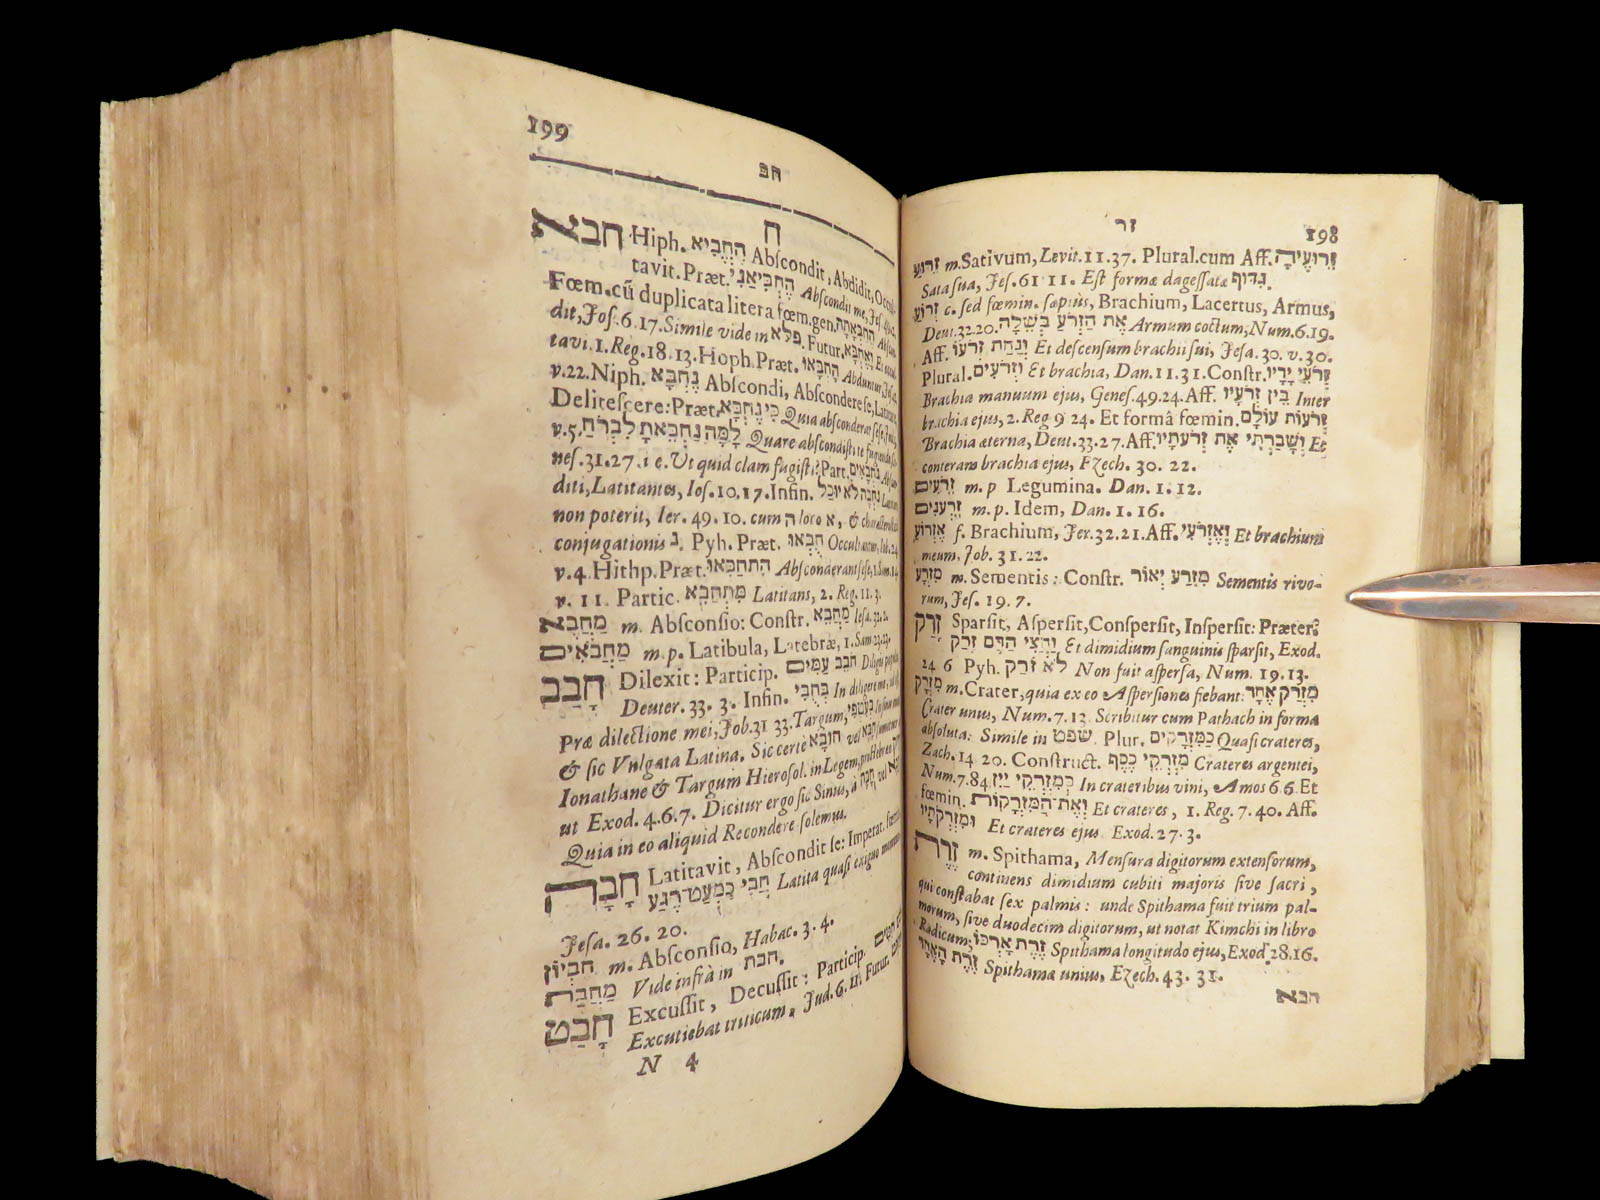 198
זר
זֵרוּעַ m. Sativum, Levit. 11. 37. Plural. cum Aff. זֵרוּעֶיהָ
Sata sua, Jes. 61 11. Est formæ dagessatæ גִּדּוּף.
זְרוֹעַ c. sed fœmin. sæpiùs, Brachium, Lacertus, Armus,
Deut. 32. 20. אֶת הַזְּרֹעַ בְּשֵׁלָה Armum coctum, Num. 6. 19.
Aff. וְנַחַת זְרֹעוֹ Et descensum brachii sui, Jesa. 30. v. 30.
Plural. וּזְרֹעִים Et brachia, Dan. 11. 31. Constr. זְרֹעֵי יָדָיו
Brachia manuum ejus, Genes. 49. 24. Aff. בֵּין זְרֹעָיו Inter
brachia ejus, 2. Reg 9 24. Et formâ fœmin. זְרֹעוֹת עוֹלָם
Brachia æterna, Deut. 33. 27. Aff. וְשָׁבַרְתִּי אֶת זְרֹעֹתָיו Et
conteram brachia ejus, Ezech. 30. 22.
זֵרֹעִים m. p Legumina. Dan. 1. 12.
זֵרְעֹנִים m. p. Idem, Dan. 1. 16.
אֶזְרוֹעַ f. Brachium, Jer. 32. 21. Aff. וְאֶזְרֹעִי Et brachium
meum, Job. 31. 22.
מִזְרָע m. Sementis: Constr. מִזְרַע יְאוֹר Sementis rivo-
rum, Jes. 19. 7.
זָרַק Sparsit, Aspersit, Conspersit, Inspersit: Præter:
וַחֲצִי הַדָּם זָרַק Et dimidium sanguinis sparsit, Exod.
24 6 Pyh. לֹא זֹרַק Non fuit aspersa, Num. 19. 13.
מִזְרָק m. Crater, quia ex eo Aspersiones fiebant: מִזְרָק אֶחָד
Crater unus, Num. 7. 13 Scribitur cum Pathach in forma
absoluta: Simile in שפט. Plur. כַּמִּזְרָקִים Quasi crateres,
Zach. 14 20. Construct. מִזְרְקֵי כֶסֶף Crateres argentei,
Num. 7. 84. בְּמִזְרְקֵי יַיִן In crateribus vini, Amos 6. 6. Et
fœmin. וְאֶת הַמִּזְרָקוֹת Et crateres, 1. Reg. 7. 40. Aff.
וּמִזְרְקֹתָיו Et crateres ejus Exod. 27. 3.
זֶרֶת m. Spithama, Mensura digitorum extensorum,
continens dimidium cubiti majoris sive sacri,
qui constabat sex palmis: unde Spithama fuit trium pal-
morum, sive duodecim digitorum, ut notat Kimchi in libro
Radicum; זֶרֶת אָרְכּוֹ Spithama longitudo ejus, Exod. 28. 16.
זֶרֶת הָאֶחָד Spithamæ unius, Ezech. 43. 31.
חבא
199
חב
ח
חבא Hiph. הֶחְבִּיא Abscondit, Abdidit, Occul-
tavit. Præt. הֶחְבִּיאַנִי Abscondit me, Jes. 49. 2.
Fœm. cū duplicata litera fœm. gen. הֶחְבְּאַתָה Abscon-
dit, Jos. 6. 17. Simile vide in פלא. Futur. וָאַחְבִּא Et occul-
tavi. 1. Reg. 18. 13. Hoph. Præt. הָחְבָּאוּ Abduntur, Jes. 42.
v. 22. Niph. נֶחְבָּא Abscondi, Abscondere se, Latitare,
Delitescere: Præt. כִּי נֶחְבָּא Quia absconderat sese, Jud. 9.
v. 5. לָמָּה נַחְבֵּאתָ לִבְרֹחַ Quare abscondisti te fugiendo
nes. 31. 27. i e. Ut quid clam fugisti? Part. נֶחְבָּאִים Abscon-
diti, Latitantes, Ios. 10. 17. Infin. נֶחְבָּה לֹא יוּכַל Latitare
non poterit, Ier. 49. 10. cum ה loco א, & characteristica
conjugationis נ. Pyh. Præt. חֻבְּאוּ Occultantur, Iob. 24
v. 4. Hithp. Præt. הִתְחַבְּאוּ Absconderant sese, 1. Sam. 14
v. 11. Partic. מִתְחַבֵּא Latitans, 2. Reg. 11. 3.
מַחֲבֵא m. Absconsio: Constr. מַחֲבֵא Iesa. 32. 2.
מַחֲבֹאִים m. p. Latibula, Latebræ, 1. Sam. 23. 23.
חָבַב Dilexit: Particip. חֹבֵב עַמִּים Diligens populos
Deuter. 33. 3. Infin. בְּחֻבִּי In diligere me,
Præ dilectione mei, Job. 31 33. Targum,
& sic Vulgata Latina. Sic certè חוֹבָא vel
Ionathane & Targum Hierosol. in Legem, pro Hebræo
ut Exod. 4. 6. 7. Dicitur ergo sic Sinus, à חבה vel
Quia in eo aliquid Recondere solemus.
חָבָה Latitavit, Abscondit se: Imperat. fœm.
חֲבִי כִמְעַט רֶגַע Latita quasi exiguo momento
Jesa. 26. 20.
חֶבְיוֹן m. Absconsio, Habac. 3. 4.
מַחֲבַת Vide infrà in חבת.
חָבַט Excussit, Decussit: Particip. חֹבֵט חִטִּים
Excutiebat triticum. Jud. 6. 11. Futur.
N 4